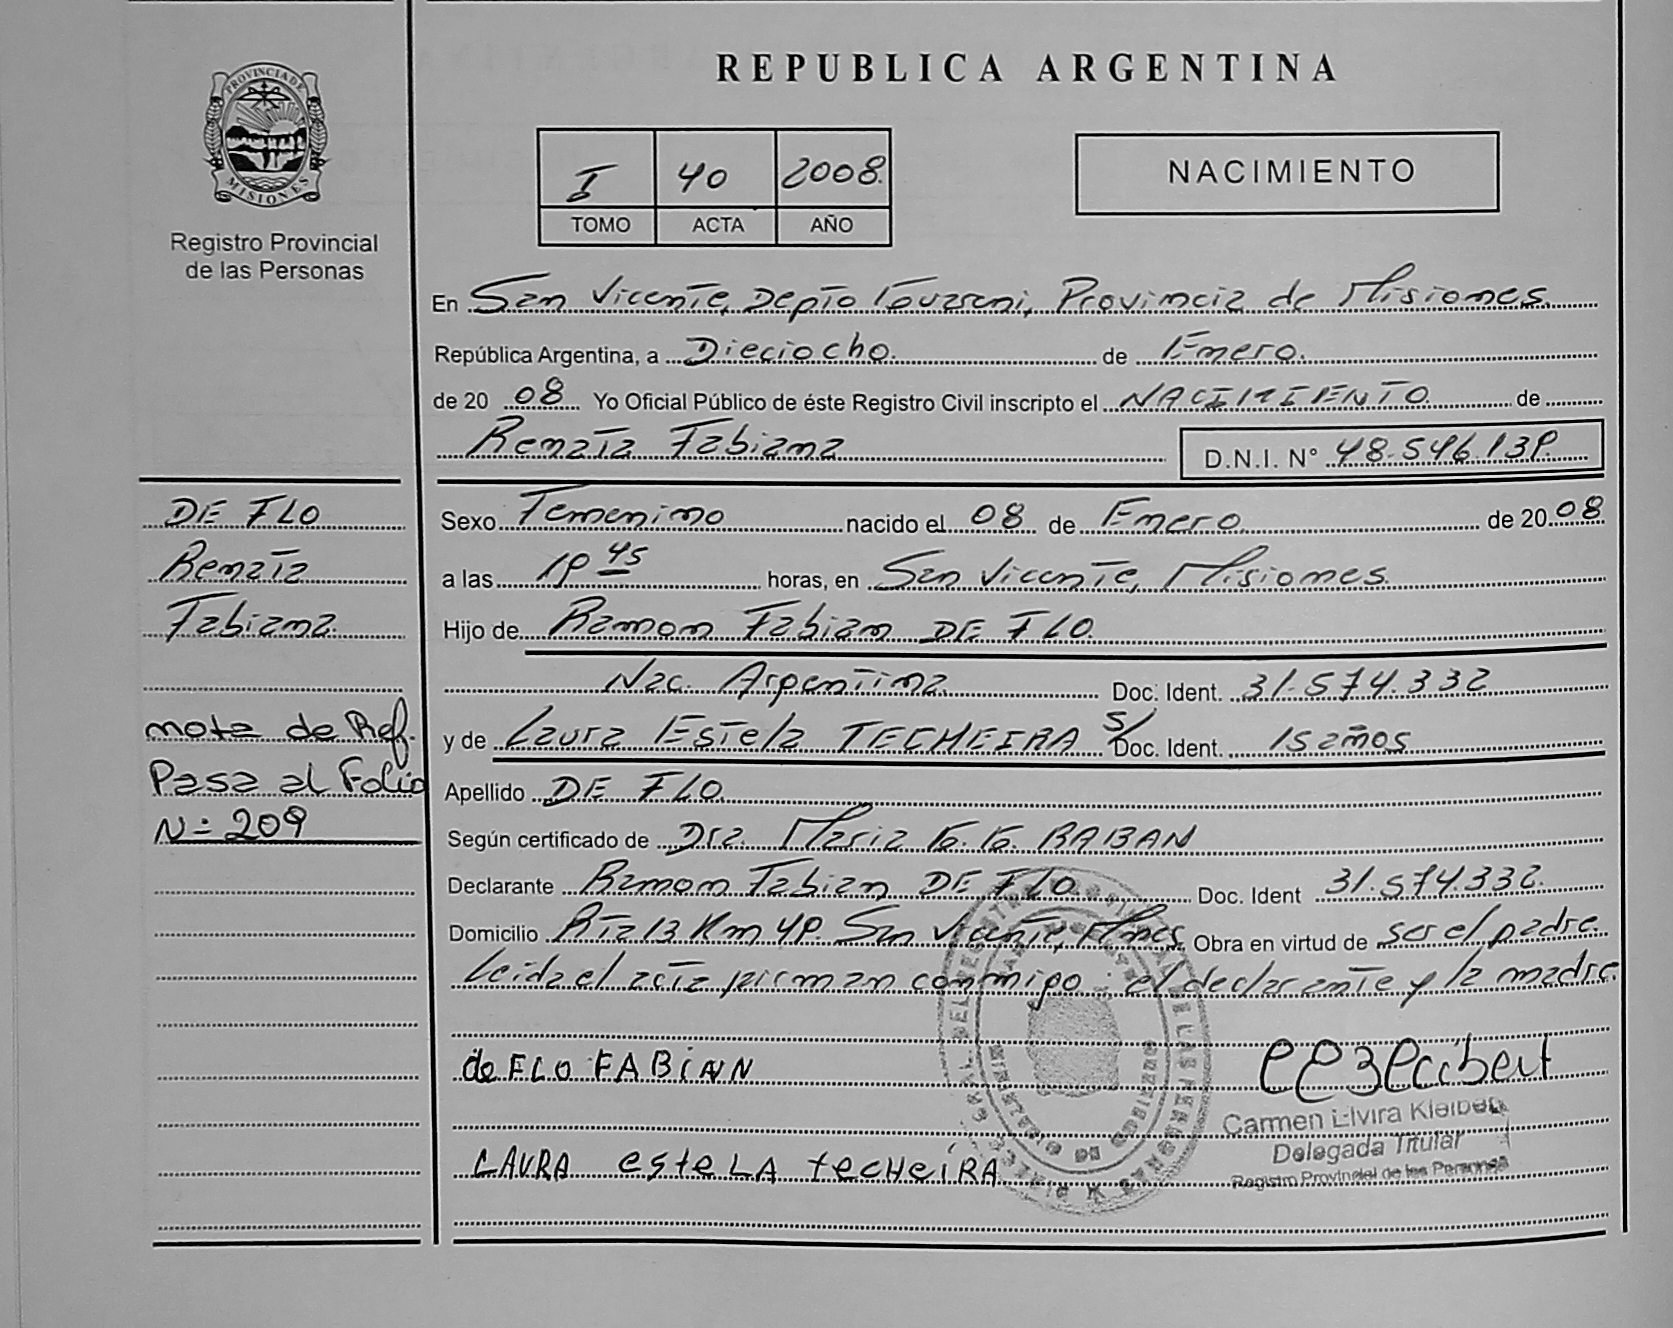 REPUBLICA ARGENTINA
PROVINCIA DE
MISIONES
Registro Provincial
de las Personas
I 40 2008
TOMO ACTA AÑO
NACIMIENTO
En San Vicente, Depto Guarani, Provincia de Misiones
República Argentina, a Dieciocho de Enero
de 20 08 Yo Oficial Público de éste Registro Civil inscripto el NACIMIENTO de
Renata Fabiana D.N.I. Nº 48.546.139
Sexo Femenino nacido el 08 de Enero de 20 08
a las 19 45 horas, en San Vicente, Misiones
Hijo de Ramon Fabian DE FLO
Nac. Argentina Doc. Ident. 31.574.332
y de Laura Estela TECHEIRA S/ Doc. Ident. 15 años
Apellido DE FLO
Según certificado de Dra. Maria G. G. RABAN
Declarante Ramon Fabian DE FLO Doc. Ident 31.574.332
Domicilio Rta 13 Km 49. San Vicente, Mnes. Obra en virtud de ser el padre.
Leida el acta firman conmigo: el declarante y la madre.
de FLO FABiAN
LAURA esteLA tecHeiRA
Carmen Elvira Kleibert
Delegada Titular
Registro Provincial de las Personas
DE FLO
Renata
Fabiana
nota de Ref.
Pasa al Folio
Nº 209